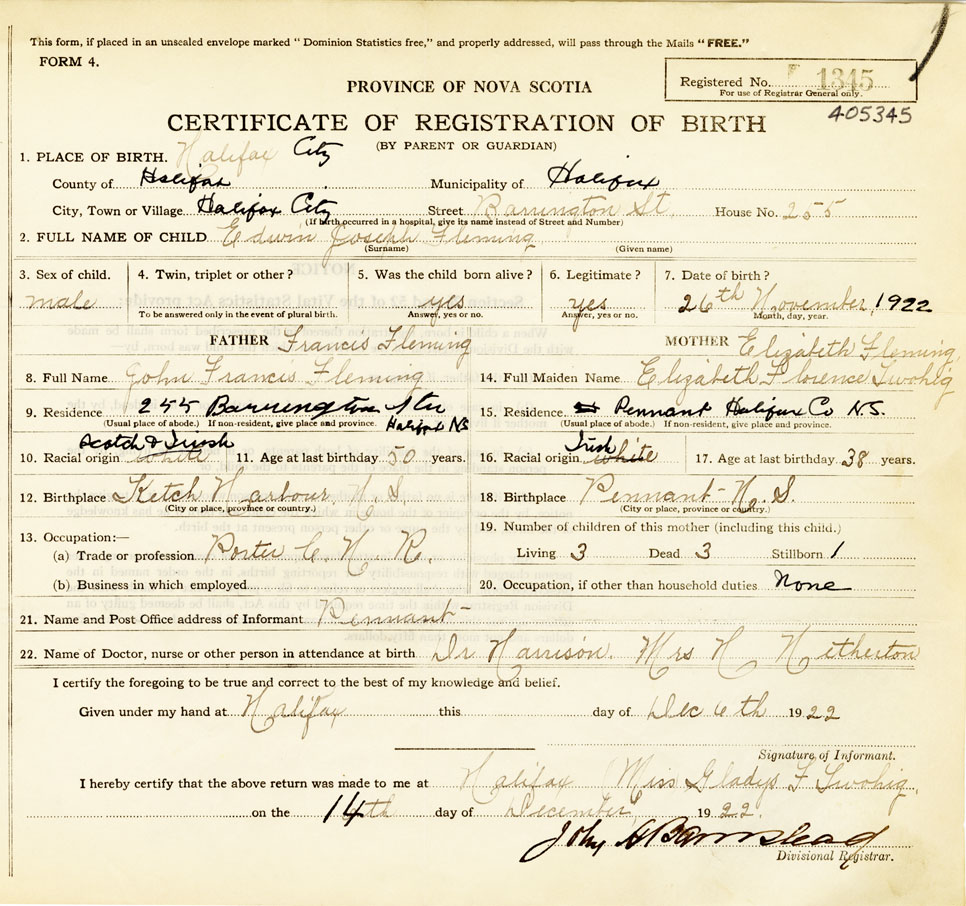 This form, if placed in an unsealed envelope marked "Dominion Statistics free," and properly addressed, will pass through the Mails "FREE."
FORM 4.
PROVINCE OF NOVA SCOTIA
Registered No. 1345
For use of Registrar General only.
405345
CERTIFICATE OF REGISTRATION OF BIRTH
(BY PARENT OR GUARDIAN)
1. PLACE OF BIRTH. Halifax City
County of Halifax Municipality of Halifax
City, Town or Village Halifax City Street Barrington St. House No. 255
(If birth occurred in a hospital, give its name instead of Street and Number)
2. FULL NAME OF CHILD Edwin Joseph Fleming
(Surname) (Given name)
3. Sex of child. 4. Twin, triplet or other? 5. Was the child born alive? 6. Legitimate? 7. Date of birth?
male yes yes 26th November, 1922
To be answered only in the event of plural birth. Answer, yes or no. Answer, yes or no. Month, day, year.
FATHER Francis Fleming MOTHER Elizabeth Fleming
8. Full Name John Francis Fleming 14. Full Maiden Name Elizabeth Florence Twohig
9. Residence 255 Barrington Str Halifax NS 15. Residence Pennant Halifax Co N.S.
(Usual place of abode.) If non-resident, give place and province. (Usual place of abode.) If non-resident, give place and province.
Scotch & Irish Irish
10. Racial origin white 11. Age at last birthday 50 years. 16. Racial origin white 17. Age at last birthday 38 years.
12. Birthplace Ketch Harbour N.S. 18. Birthplace Pennant N.S.
(City or place, province or country.) (City or place, province or country.)
13. Occupation:— 19. Number of children of this mother (including this child.)
(a) Trade or profession Porter C. N. R. Living 3 Dead 3 Stillborn 1
(b) Business in which employed 20. Occupation, if other than household duties None
21. Name and Post Office address of Informant Pennant
22. Name of Doctor, nurse or other person in attendance at birth Dr Harrison. Mrs N Netherton
I certify the foregoing to be true and correct to the best of my knowledge and belief.
Given under my hand at Halifax this day of Dec 6th 1922
Signature of Informant.
I hereby certify that the above return was made to me at Halifax (Miss Gladys F Twohig
on the 14th day of December, 1922.
John A Barnstead
Divisional Registrar.